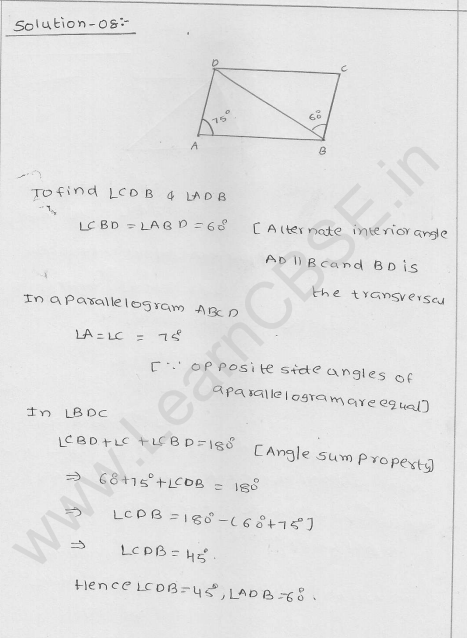 Solution-08:-
D
C
75°
60°
A
B
To find ∠CDB & ∠ADB
∠CBD = ∠ABD = 60° [Alternate interior angle
AD || BC and BD is
the transversal
In a parallelogram ABCD
∠A = ∠C = 75°
[∵ opposite side angles of
a parallelogram are equal]
In ∠BDC
∠CBD + ∠C + ∠CBD = 180° [Angle sum property]
⇒ 60° + 75° + ∠CDB = 180°
⇒ ∠CDB = 180° - (60° + 75°)
⇒ ∠CDB = 45°.
Hence ∠CDB = 45°, ∠ADB = 60°.
www.LearnCBSE.in